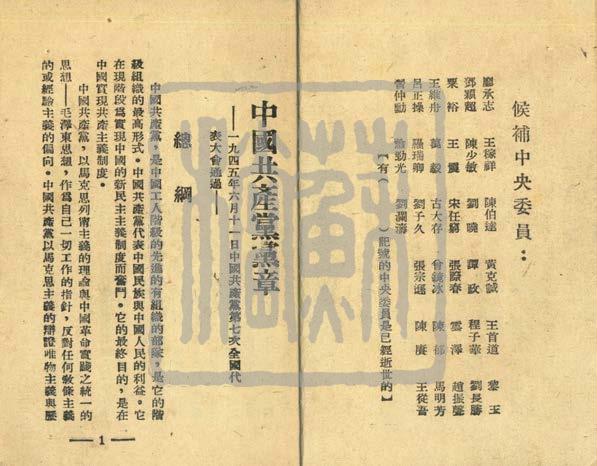 候補中央委員：
廖承志 王稼祥 陳伯達 黃克誠 王首道 黎玉
鄧穎超 陳少敏 劉曉 譚政 程子華 劉長勝
粟裕 王震 宋任窮 張際春 雲澤 趙振聲
王維舟 萬毅 古大存 曾鏡冰 陳郁 馬明芳
呂正操 羅瑞卿 劉子久 張宗遜 陳賡 王從吾
習仲勳 蕭勁光 劉瀾濤
【有（ ）記號的中央委員是已經逝世的】
中國共產黨黨章
——一九四五年六月十一日中國共產黨第七次全國代
表大會通過——
總綱
中國共產黨，是中國工人階級的先進的有組織的部隊，是它的階
級組織的最高形式。中國共產黨代表中國民族與中國人民的利益。它
在現階段爲實現中國的新民主主義制度而奮鬥。它的最終目的，是在
中國實現共產主義制度。
中國共產黨，以馬克思列甯主義的理論與中國革命實踐之統一的
思想——毛澤東思想，作爲自己一切工作的指針，反對任何教條主義
的或經驗主義的偏向。中國共產黨以馬克思主義的辯證唯物主義與歷
— 1 —